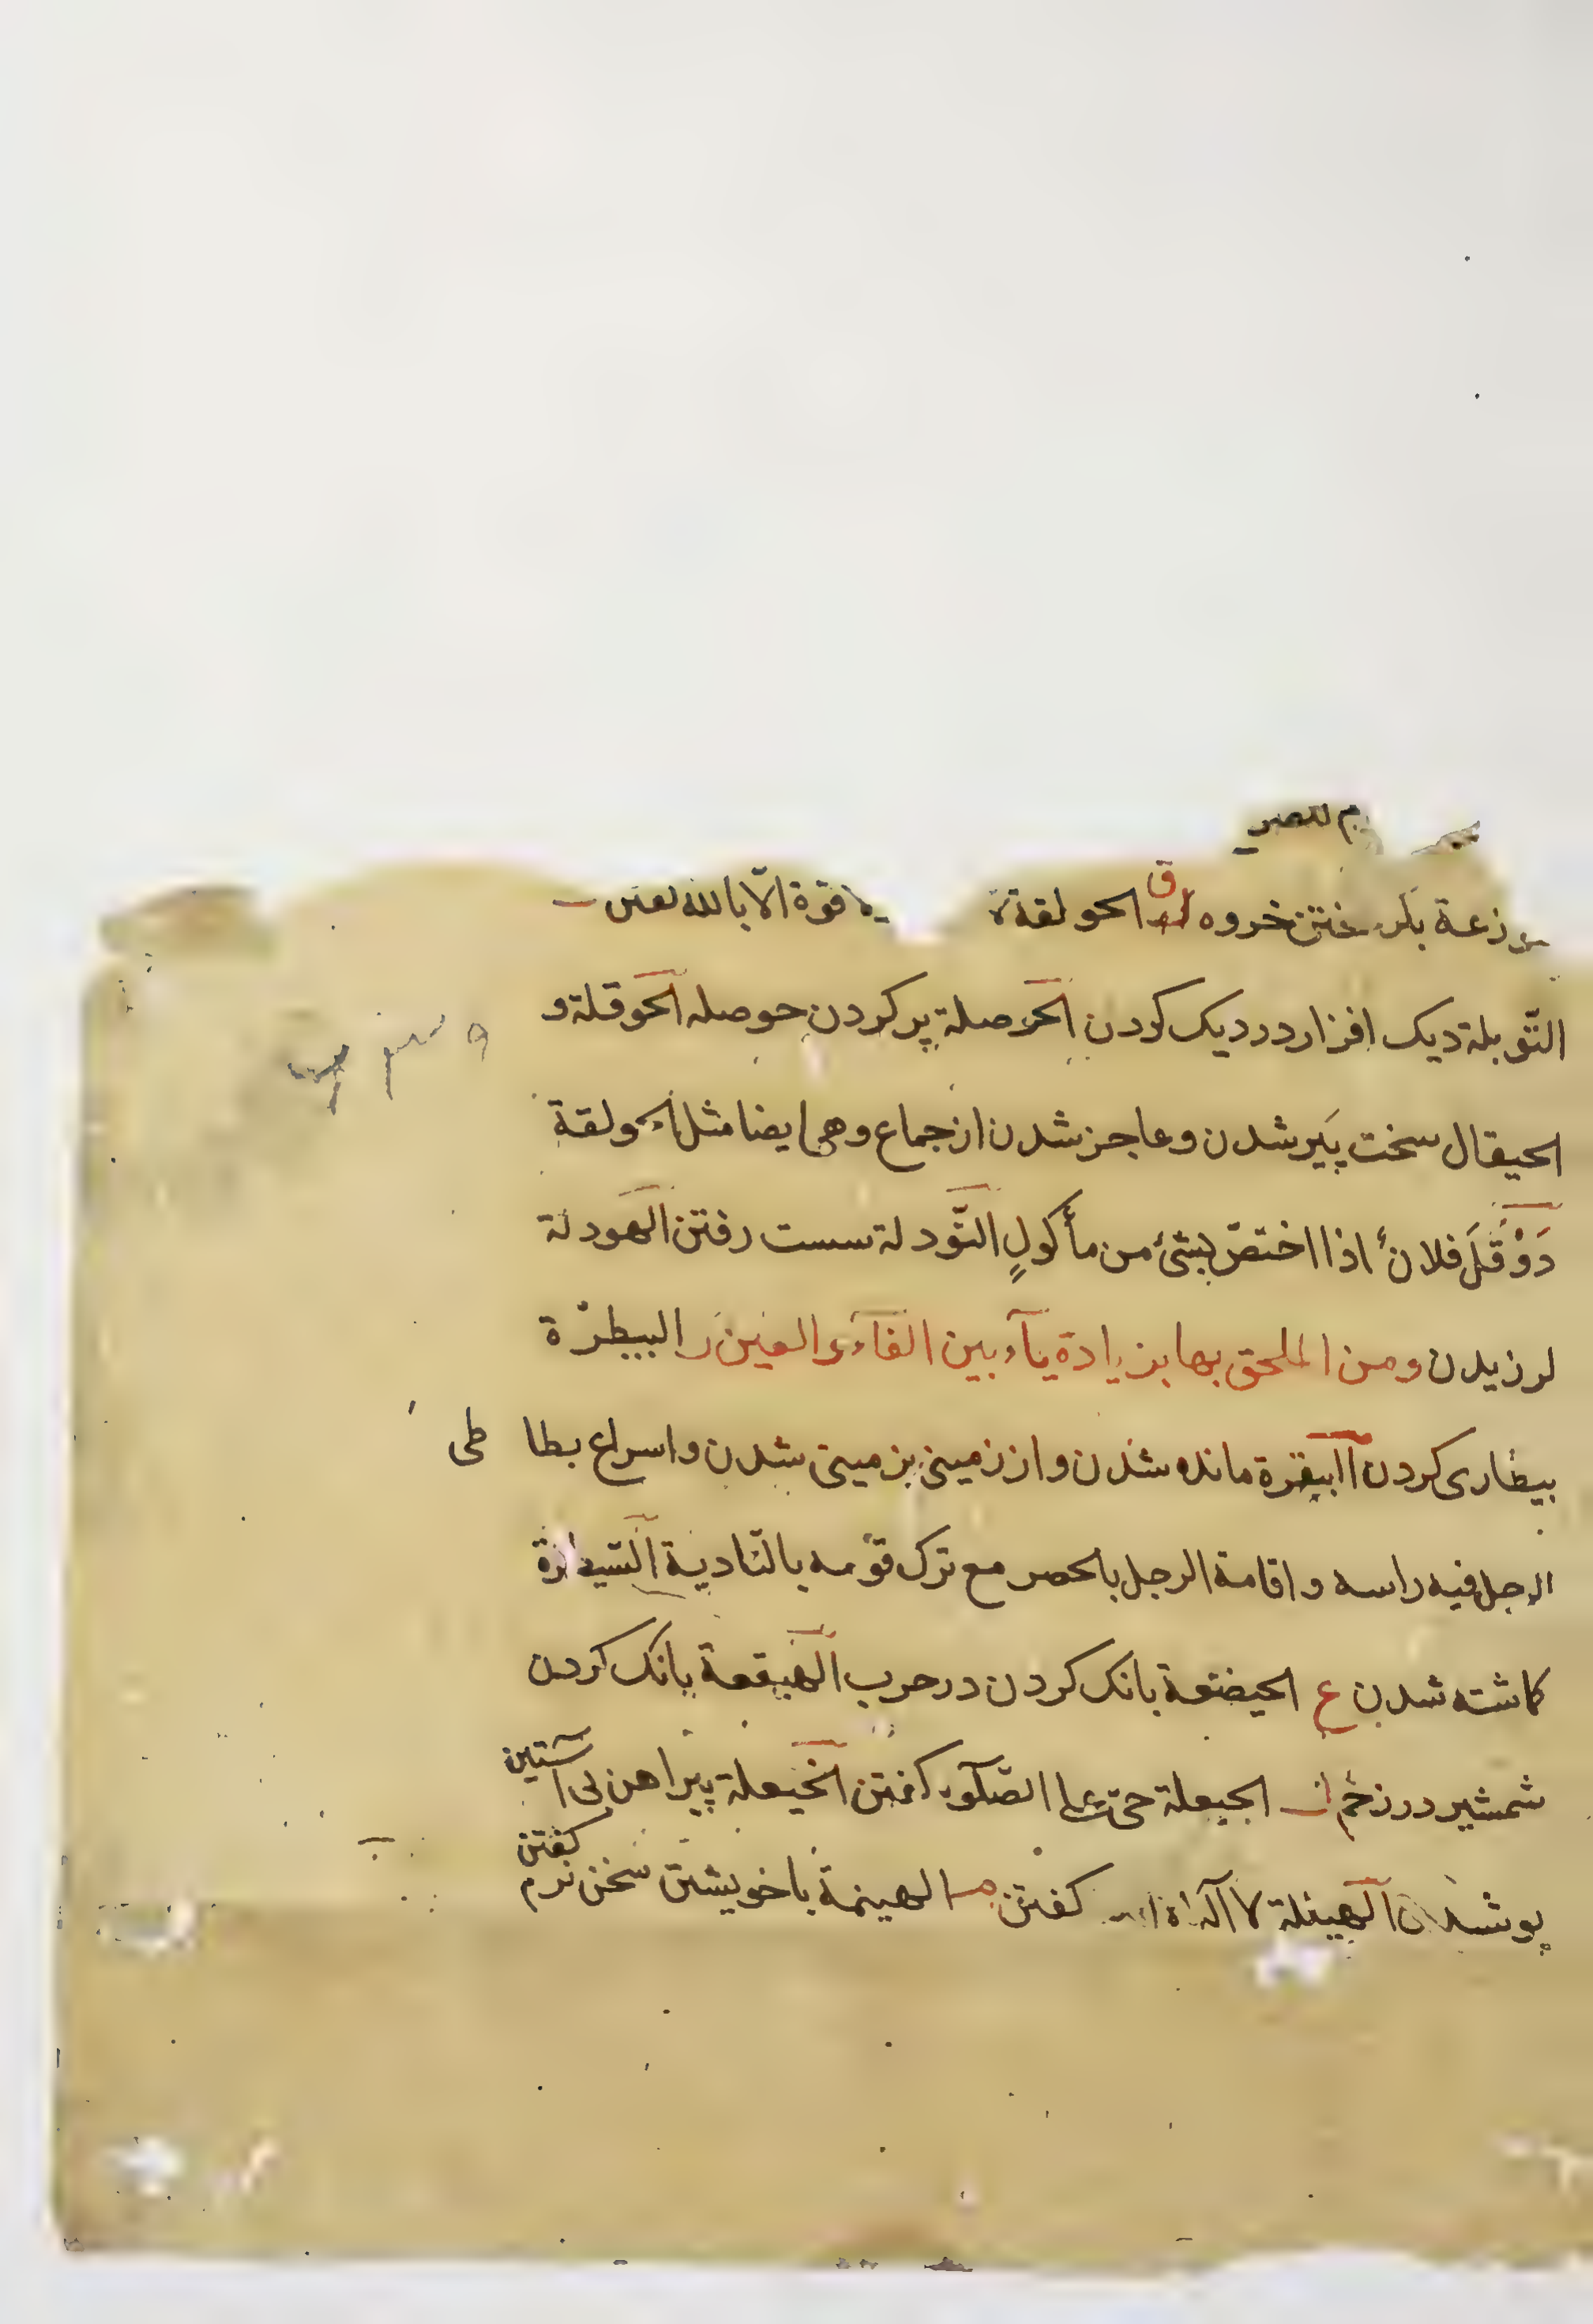 زعة خروه ق الحولقة لا قوة الّا بالله
التّوبلة ديک افزار در ديک کردن الحوصلة پر کردن حوصله الحوقلة و
الحيقال سخت پَير شدن و عاجز شدن از جماع وهی ايضا مثل الحولقة
دَوْقَلَ فلانٌ اذا اختصّ بشئ من مأکولٍ النّودلة سست رفتن الهودلة
لرزيدن ومن الملحق بها بزيادة يآء بين الفآء والعين ر البيطرة
بيطاری کردن البيقرة مانده شدن و از زمينی بزمينی شدن و اسراع يطا طی
الرجل فيه راسه و اقامة الرجل بالحضر مع ترک قومه بالبادية
کاشته شدن ع الخيضعة بانک کردن در حرب الهيقعة بانک کردن
شمشير در زخم ل الجيعلة حیّ علی الصّلوة کفتن الخيعلة پيراهن بی آستين
پوشيدن الهيللة لا اله الا الله کفتن م الهينمة با خويشتن سخن نرم کفتن